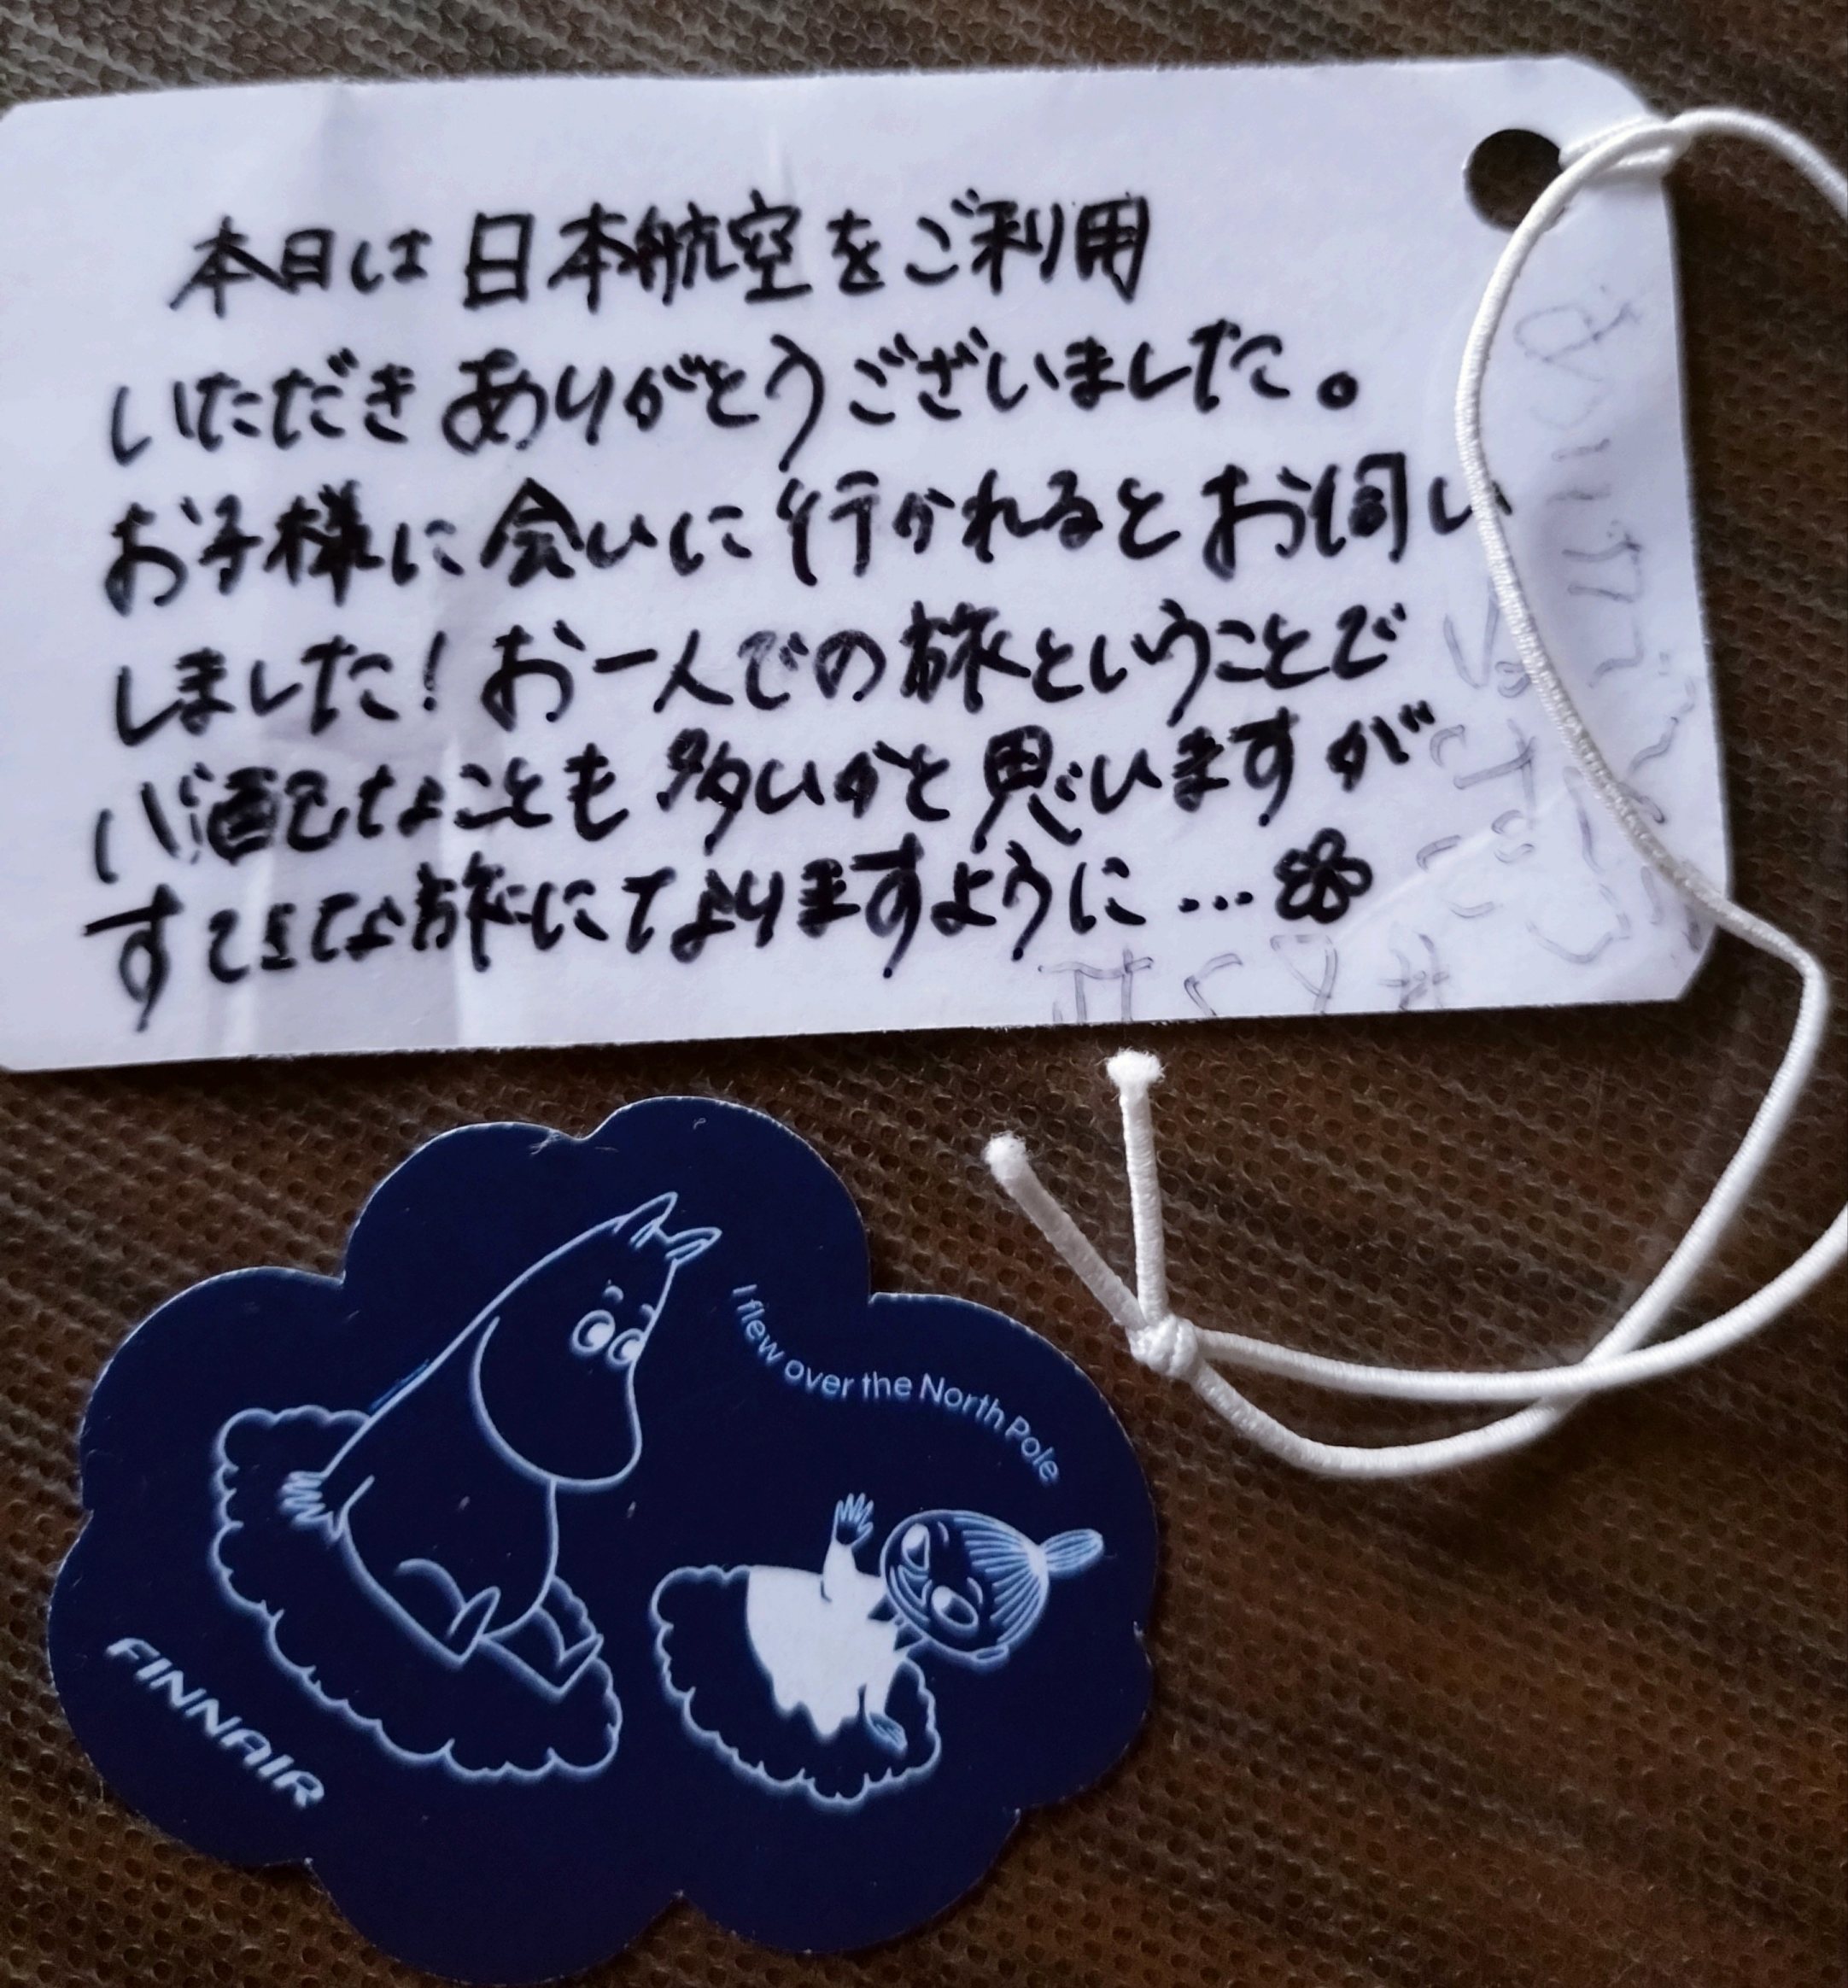 本日は日本航空をご利用
いただきありがとうございました。
お子様に会いに行かれるとお伺い
しました！お一人での旅ということで
心配なことも多いかと思いますが
すてきな旅になりますように…
I flew over the North Pole
FINNAIR